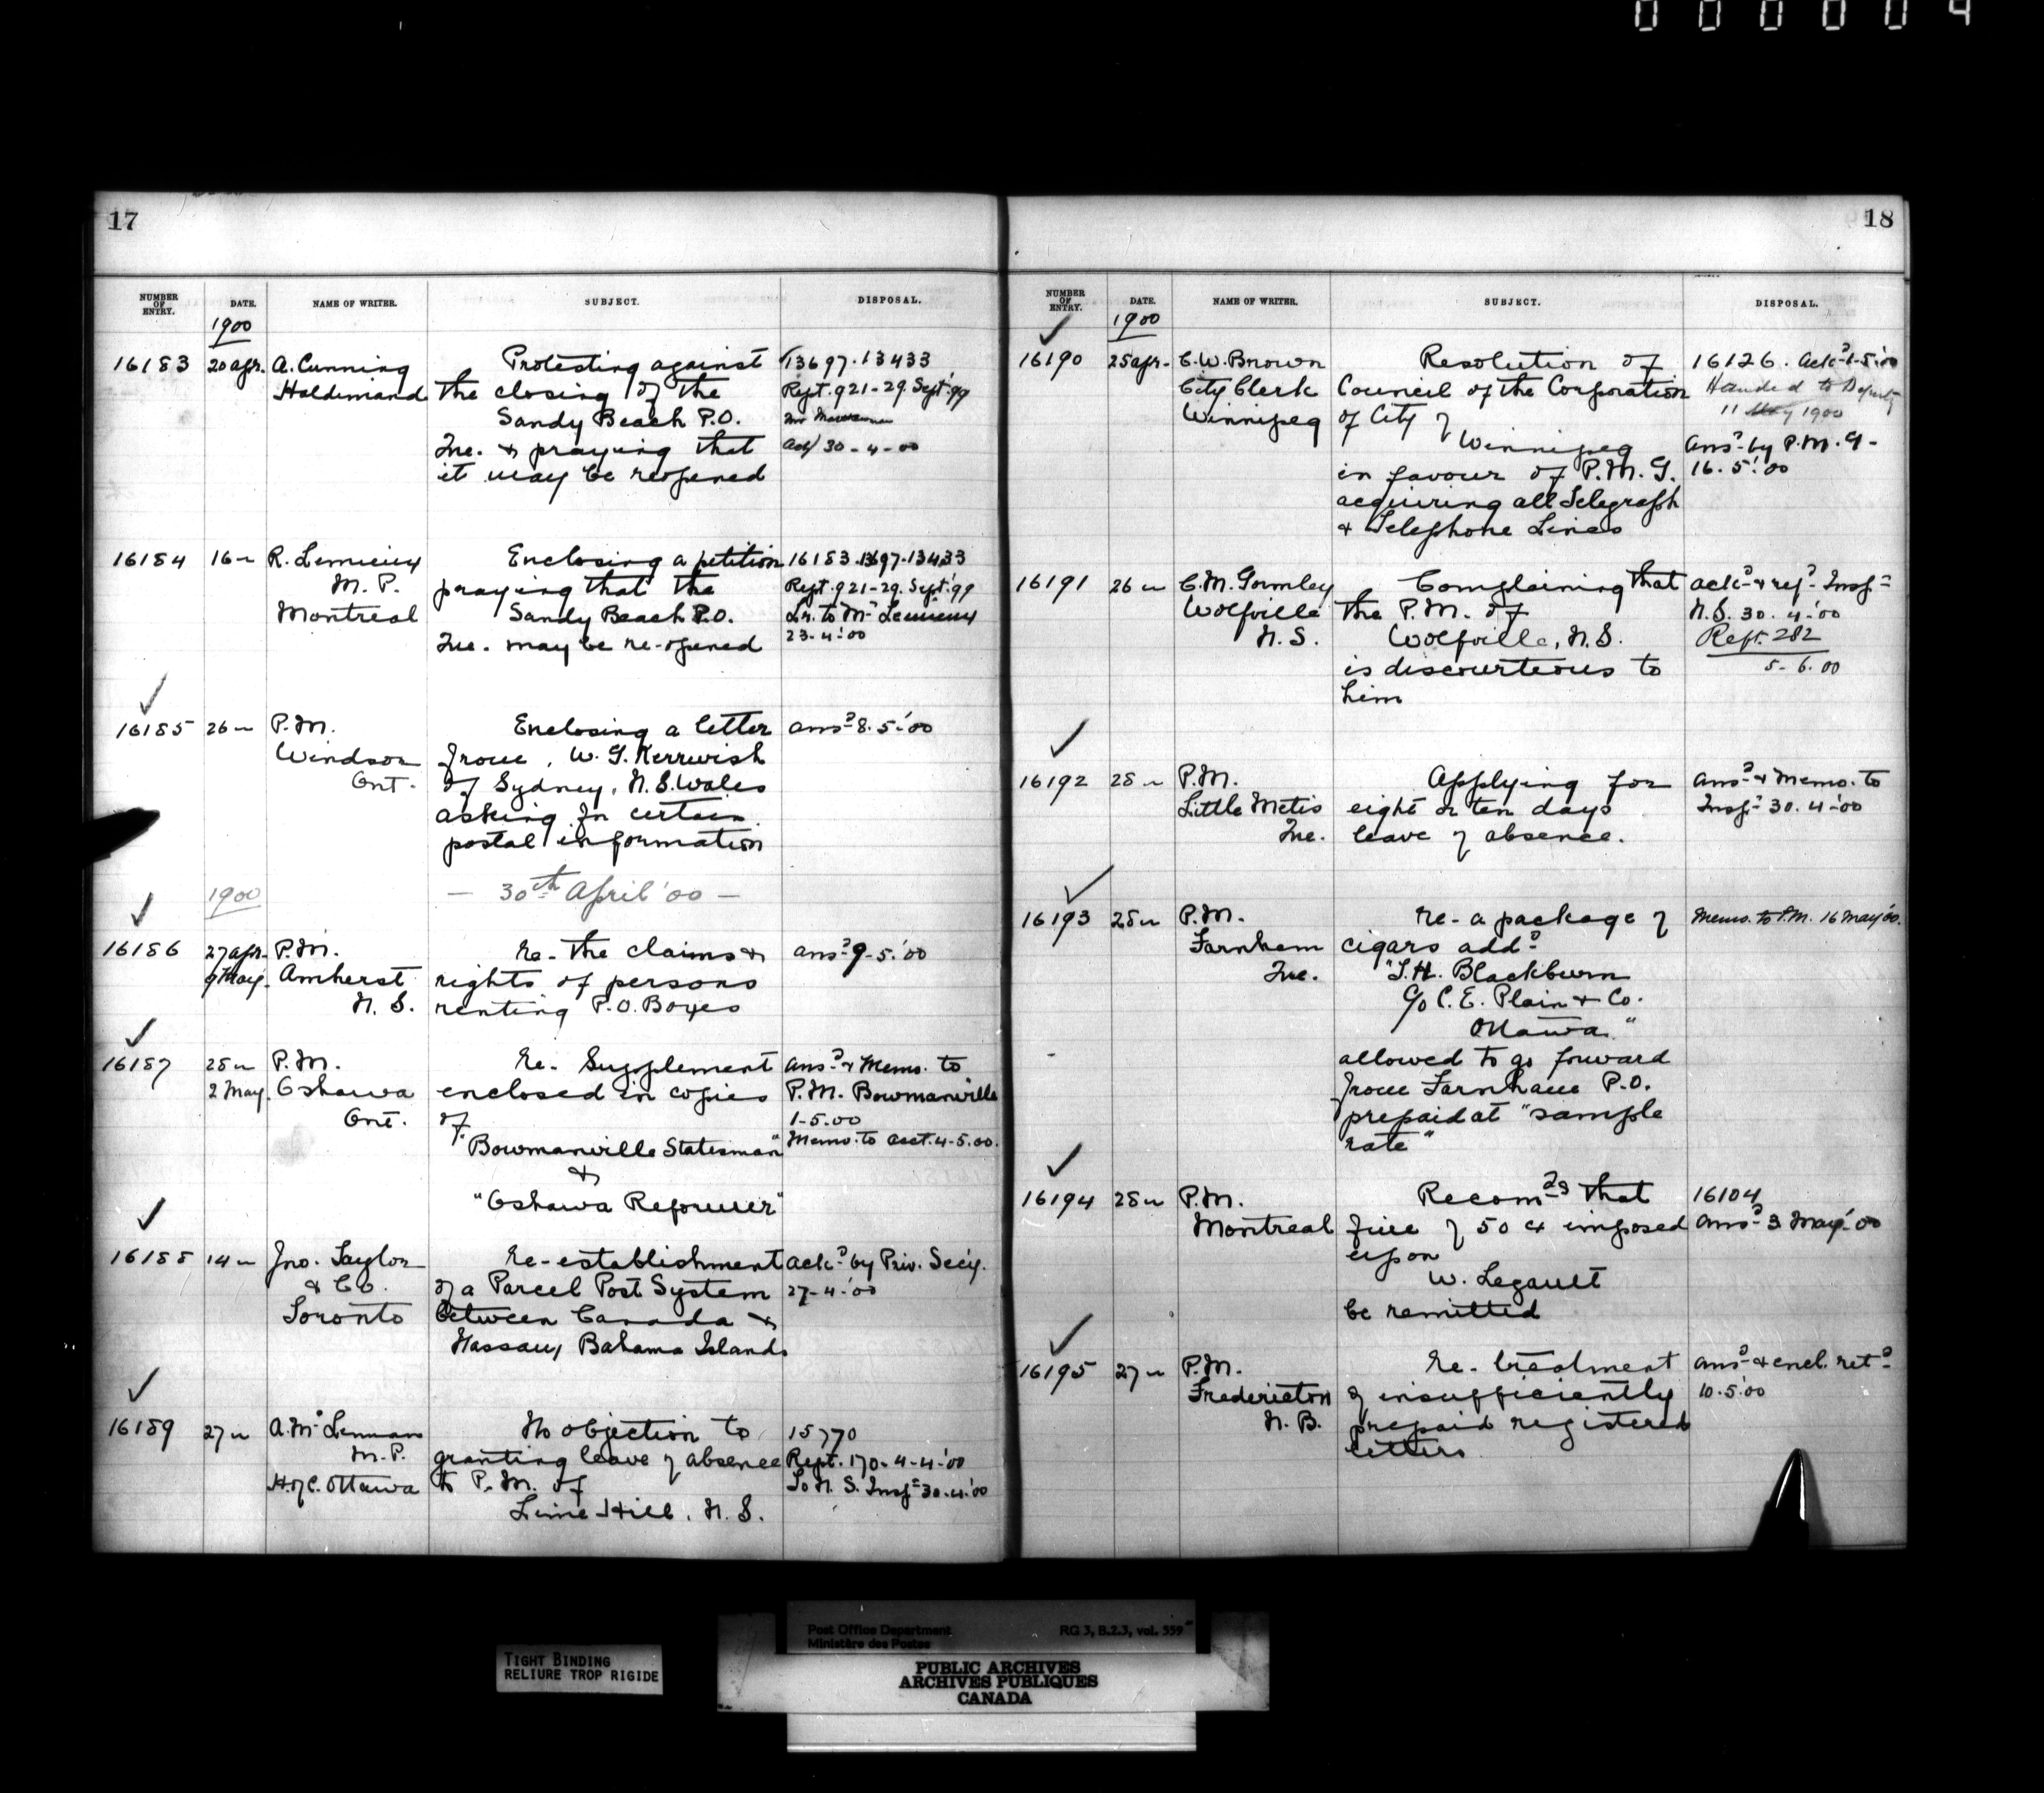 000004
17
NUMBER OF ENTRY. DATE. NAME OF WRITER. SUBJECT. DISPOSAL.
1900
16183 20 apr. A. Cunning Protesting against 13697.13433
Haldimand the closing of the Rept. 921-29. Sept. '99
Sandy Beach P.O.
Que. & praying that ack 30-4-00
it may be reopened
16184 16 " R. Lemieux Enclosing a petition 16183.13697.13433
M.P. praying that the Rept. 921-29. Sept. '99
Montreal Sandy Beach P.O. Lr. to Mr Lemieux
Que. may be re-opened 23-4-'00
16185 26 " P.M. Enclosing a letter ansd 8.5.'00
Windsor from, W. G. Kerruish
Ont. of Sydney, N.S. Wales
asking for certain
postal information
1900 — 30th April '00 —
16186 27 apr. P.M. Re- the claims & ansd 9-5.'00
9 May. Amherst rights of persons
N.S. renting P.O. Boxes
16187 28 " P.M. Re- Supplement ansd & Memo. to
2 May. Oshawa enclosed in copies P.M. Bowmanville
Ont. of 1-5.00
"Bowmanville Statesman" Memo. to acct. 4-5.00.
&
"Oshawa Reformer"
16188 14 " Jno. Taylor Re-establishment ackd by Priv. Secy.
& Co. of a Parcel Post System 27-4-'00
Toronto between Canada &
Nassau, Bahama Islands
16189 27 " A. McLennan No objection to 15770
M.P. granting leave of absence Rept. 170-4-4-'00
H. of C. Ottawa to P.M. of To N.S. Inspr 30.4.'00
Lime Hill, N.S.
18
NUMBER OF ENTRY. DATE. NAME OF WRITER. SUBJECT. DISPOSAL.
1900
16190 25 apr. C. W. Brown Resolution of 16126. ackd 1-5.'00
City Clerk Council of the Corporation Handed to Deputy
Winnipeg of City of 11 May 1900
Winnipeg ansd by P.M.G.
in favour of P.M.G. 16.5.'00
acquiring all Telegraph
& Telephone Lines
16191 26 " C. M. Gormley Complaining that ackd & refd Inspr
Wolfville the P.M. of N.S. 30.4.'00
N.S. Wolfville, N.S. Rept. 282
is discourteous to 5-6.00
him
16192 28 " P.M. Applying for ansd & Memo. to
Little Metis eight or ten days Inspr 30.4-'00
Que. leave of absence.
16193 28 " P.M. Re- a package of Memo. to P.M. 16 May '00.
Farnham cigars addd
Que. "T. H. Blackburn
c/o C. E. Plain & Co.
Ottawa"
allowed to go forward
from Farnham P.O.
prepaid at "sample
rate"
16194 28 " P.M. Recomds that 16104
Montreal fine of 50 c imposed ansd 3 May '00
upon
W. Legault
be remitted
16195 27 " P.M. Re- treatment ansd & encl. retd
Fredericton of insufficiently 10.5.'00
N.B. prepaid registered
letters
Post Office Department RG 3, B.2.3, vol. 559
Ministère des Postes
TIGHT BINDING
RELIURE TROP RIGIDE
PUBLIC ARCHIVES
ARCHIVES PUBLIQUES
CANADA